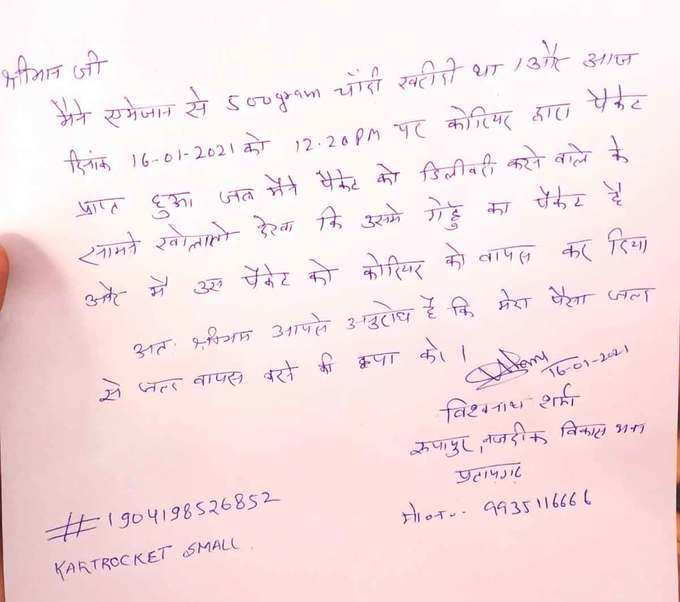 श्रीमान जी
मैने एमेजान से 500gram चाँदी खरीदी था। और आज
दिनांक 16-01-2021 को 12.20PM पर कोरियर द्वारा पैकेट
प्राप्त हुआ जब मैने पैकेट को डिलीवरी करने वाले के
सामने खोला तो देखा कि उसमे गेहुँ का पैकेट है
और मै उस पैकेट को कोरियर को वापस कर दिया
अतः श्रीमान आपसे अनुरोध है कि मेरा पैसा जल्द
से जल्द वापस करने की कृपा करे।
16-01-2021
विश्वनाथ शर्मा
रुपापुर, नजदीक विकास भवन
प्रतापगढ़
9935116666
#1904198526852
KARTROCKET SMALL